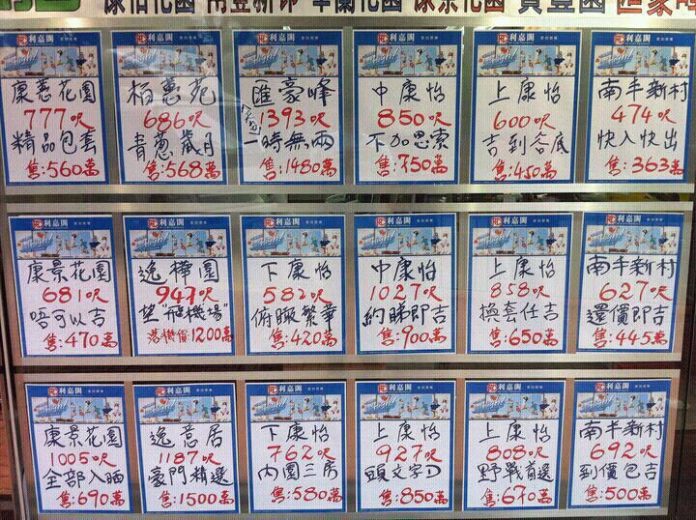 康怡花園 南豐新邨 華蘭花園 康景花園
利嘉閣
康蕙花園
777呎
精品包套
售:560萬
利嘉閣
柏蕙苑
686呎
青蔥歲月
售:568萬
利嘉閣
匯豪峰
1393呎
一時無兩
售:1480萬
利嘉閣
中康怡
850呎
不加思索
售:750萬
利嘉閣
上康怡
600呎
吉到谷底
售:450萬
利嘉閣
南丰新村
474呎
快入快出
售:363萬
利嘉閣
康景花園
681呎
唔可以吉
售:470萬
利嘉閣
逸樺園
947呎
坐"飛機場"
落機價1200萬
利嘉閣
下康怡
582呎
俯瞰繁華
售:420萬
利嘉閣
中康怡
1027呎
約睇即吉
售:900萬
利嘉閣
上康怡
858呎
換套任吉
售:650萬
利嘉閣
南丰新村
627呎
還價即吉
售:445萬
利嘉閣
康景花園
1005呎
全部入晒
售:690萬
利嘉閣
逸意居
1187呎
豪門精選
售:1500萬
利嘉閣
下康怡
762呎
內園三房
售:580萬
利嘉閣
上康怡
927呎
頭文字D
售:850萬
利嘉閣
上康怡
808呎
野戰首選
售:670萬
利嘉閣
南丰新村
692呎
到價包吉
售:500萬